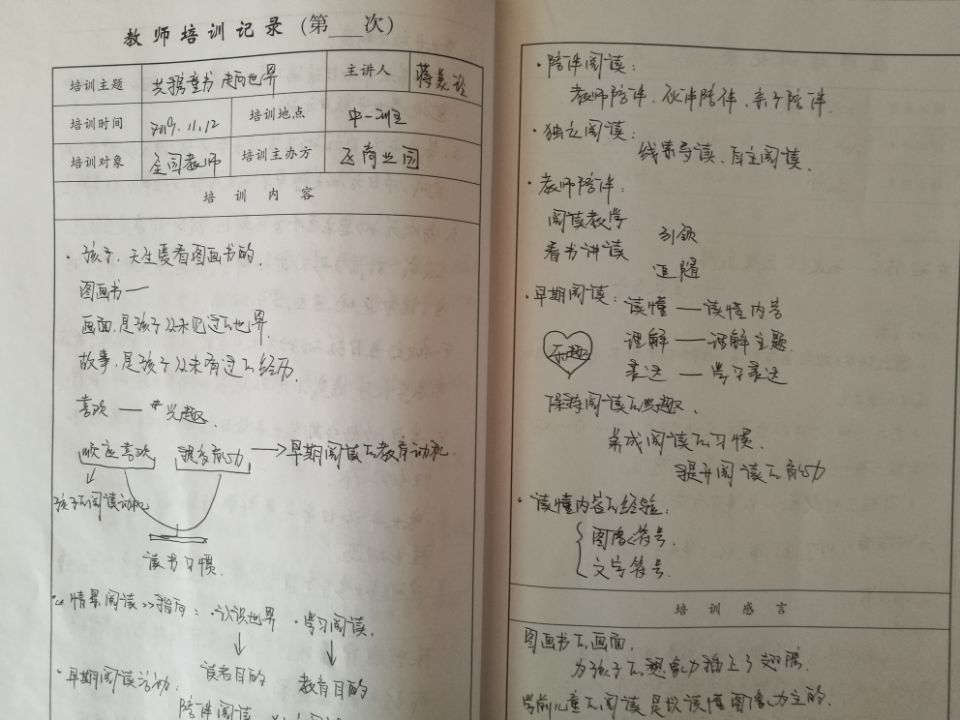 教师培训记录（第___次）
培训主题 共握童书 走向世界 主讲人 蒋
培训时间 2019.11.12 培训地点 中一班
培训对象 全园教师 培训主办方
培训内容
· 孩子，天生爱看图画书的.
图画书一
画面，是孩子从未见过的世界.
故事，是孩子从未有过的经历.
喜欢 — 兴趣.
顺应喜欢 提高能力 → 早期阅读的教育动机.
孩子的阅读动机
读书习惯.
·《情景阅读》指向： ·认识世界 ·学习阅读.
读者目的 教育目的
·早期阅读活动：
陪伴阅读
·陪伴阅读：
教师陪伴、伙伴陪伴、亲子陪伴.
·独立阅读：
线索导读、自主阅读.
·教师陪伴：
阅读教学 引领
看书讲读 追随
·早期阅读： 读懂 — 读懂内容
乐趣 理解 — 理解主题.
表达 — 学习表达
保持阅读的兴趣.
养成阅读的习惯.
提升阅读的能力
·读懂内容的经验：
图像符号.
文字符号.
培训感言
图画书的画面，
为孩子的想象力插上了翅膀.
学前儿童的阅读是以读懂图像为主的.